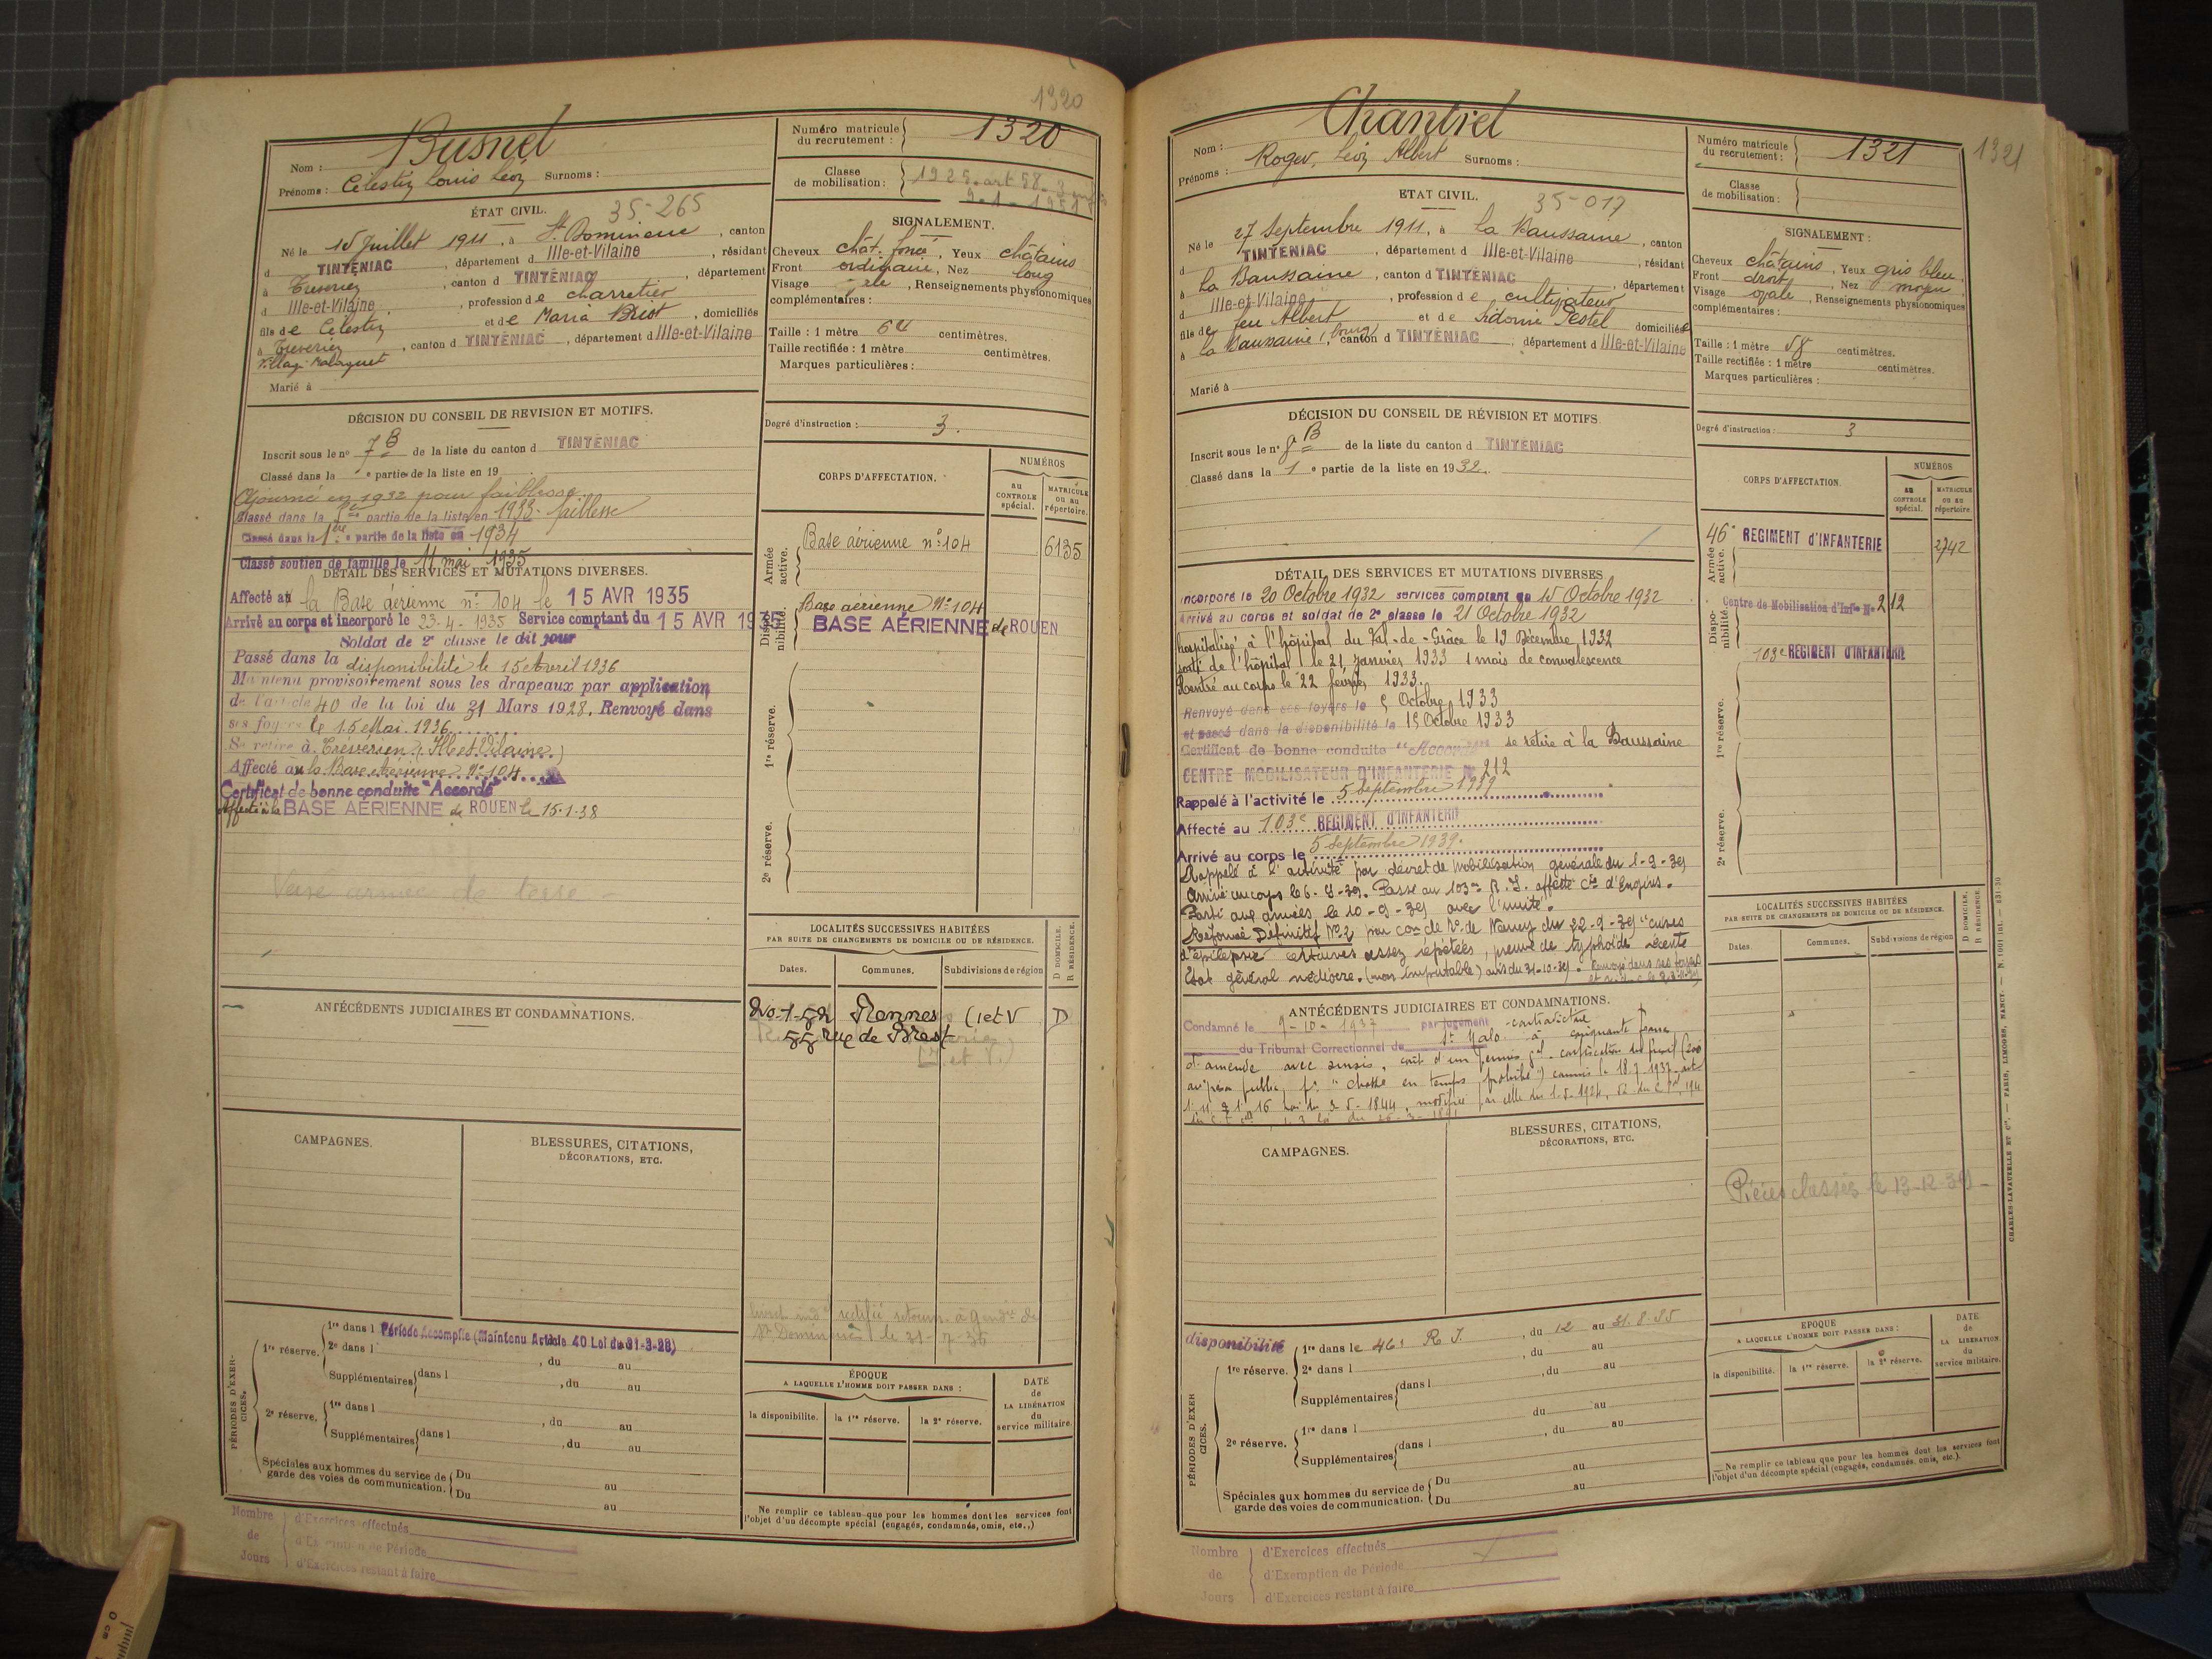 1320
Nom : Busnel
Prénoms : Célestin Louis Léon Surnoms :
Numéro matricule du recrutement : 1320
Classe de mobilisation : 1929. art 58.
ÉTAT CIVIL. 35-265
Né le 15 Juillet 1911, à St Domineuc, canton
d TINTÉNIAC, département d Ille-et-Vilaine, résidant
à Trévérien, canton d TINTÉNIAC, département
d Ille-et-Vilaine, profession de charretier
fils de Célestin et de Maria Briot, domiciliés
à Trévérien, canton d TINTÉNIAC, département d Ille-et-Vilaine
Village
Marié à
SIGNALEMENT.
Cheveux chât. foncé, Yeux châtains
Front ordinaire, Nez long
Visage , Renseignements physionomiques
complémentaires :
Taille : 1 mètre 64 centimètres.
Taille rectifiée : 1 mètre centimètres.
Marques particulières :
Degré d'instruction : 3.
DÉCISION DU CONSEIL DE REVISION ET MOTIFS.
Inscrit sous le n° 7 B de la liste du canton d TINTÉNIAC
Classé dans la e partie de la liste en 19
Ajourné en 1932 pour faiblesse
Classé dans la partie de la liste en 1933 - faiblesse
Classé dans la 1ère partie de la liste en 1934
Classé soutien de famille le 11 mai 1935
DÉTAIL DES SERVICES ET MUTATIONS DIVERSES.
Affecté à la Base aérienne n° 104 le 15 AVR 1935
Arrivé au corps et incorporé le 23-4-1935 Service comptant du 15 AVR 1935
Soldat de 2e classe le dit jour
Passé dans la disponibilité le 15 Avril 1936
Maintenu provisoirement sous les drapeaux par application
de l'article 40 de la loi du 31 Mars 1928. Renvoyé dans
ses foyers le 15 Mai 1936
Se retire à Trévérien (Ille et Vilaine)
Affecté à la Base Aérienne N° 104
Certificat de bonne conduite "Accordé"
Affecté à la BASE AÉRIENNE de ROUEN le 15-1-38
Versé armée de terre
CORPS D'AFFECTATION.
NUMÉROS
AU CONTROLE spécial.
MATRICULE OU AU répertoire.
Armée active.
Base aérienne n° 104 6135
Disponibilité.
Base aérienne N° 104
BASE AÉRIENNE de ROUEN
1re réserve.
2e réserve.
LOCALITÉS SUCCESSIVES HABITÉES
PAR SUITE DE CHANGEMENTS DE DOMICILE OU DE RÉSIDENCE.
D DOMICILE. R RÉSIDENCE.
Dates. Communes. Subdivisions de région
20-1-52 Rennes I et V D
55 rue de Brest
ANTÉCÉDENTS JUDICIAIRES ET CONDAMNATIONS.
CAMPAGNES.
BLESSURES, CITATIONS,
DÉCORATIONS, ETC.
PÉRIODES D'EXERCICES.
1re réserve.
1re dans l Période Accomplie (Maintenu Article 40 Loi du 31-3-28)
2e dans l , du au
Supplémentaires dans l , du au
2e réserve.
1re dans l , du au
Supplémentaires dans l , du au
Spéciales aux hommes du service de garde des voies de communication. Du au
Du au
ÉPOQUE
A LAQUELLE L'HOMME DOIT PASSER DANS :
la disponibilité. la 1re réserve. la 2e réserve.
DATE de LA LIBÉRATION du service militaire.
Ne remplir ce tableau que pour les hommes dont les services font
l'objet d'un décompte spécial (engagés, condamnés, omis, etc..)
Nombre de Jours
d'Exercices effectués
d'Exemption de Période
d'Exercices restant à faire
1321
Nom : Chantrel
Prénoms : Roger, Léon Albert Surnoms :
Numéro matricule du recrutement : 1321
Classe de mobilisation :
ETAT CIVIL. 35-017
Né le 27 Septembre 1911, à la Baussaine, canton
d TINTÉNIAC, département d Ille-et-Vilaine, résidant
à la Baussaine, canton d TINTÉNIAC, département
d Ille-et-Vilaine, profession de cultivateur
fils de feu Albert et de Sidonie Pestel domiciliée
à la Baussaine (bourg), canton d TINTÉNIAC, département d Ille-et-Vilaine
Marié à
SIGNALEMENT :
Cheveux châtains, Yeux gris bleu
Front droit, Nez moyen
Visage ovale, Renseignements physionomiques
complémentaires :
Taille : 1 mètre 58 centimètres.
Taille rectifiée : 1 mètre centimètres.
Marques particulières :
Degré d'instruction : 3
DÉCISION DU CONSEIL DE RÉVISION ET MOTIFS
Inscrit sous le n° 8 B de la liste du canton d TINTÉNIAC
Classé dans la 1e partie de la liste en 1932.
DÉTAIL DES SERVICES ET MUTATIONS DIVERSES
Incorporé le 20 Octobre 1932 services comptant du 15 Octobre 1932
Arrivé au corps et soldat de 2e classe le 21 Octobre 1932
hospitalisé à l'hôpital du Val-de-Grâce le 19 Décembre 1932
sorti de l'hôpital le 21 janvier 1933 1 mois de convalescence
Rentré au corps le 22 février 1933.
Renvoyé dans ses foyers le 5 Octobre 1933
et passé dans la disponibilité le 15 Octobre 1933
Certificat de bonne conduite "Accordé" se retire à la Baussaine
CENTRE MOBILISATEUR D'INFANTERIE N° 212
Rappelé à l'activité le 5 septembre 1939
Affecté au 103e REGIMENT D'INFANTERIE
Arrivé au corps le 5 septembre 1939.
Rappelé à l'activité par décret de mobilisation générale du 1-9-39
Arrivé au corps le 6-9-39. Passé au 103e R.I. affecté Cie d'Engins.
Parti aux armées le 10-9-39 avec l'unité.
Réformé Définitif N° 2 par Con de Re de Nancy du 22-9-39 "crises
d'épilepsie assez répétées, preuve de typhoïde récente
Etat général médiocre. (non imputable) avis du 31-10-39. Renvoyé dans ses foyers
CORPS D'AFFECTATION.
NUMÉROS
AU CONTROLE spécial.
MATRICULE OU AU répertoire.
Armée active.
46e REGIMENT d'INFANTERIE 2742
Disponibilité.
Centre de Mobilisation d'Infie N° 212
103e REGIMENT D'INFANTERIE
1re réserve.
2e réserve.
LOCALITÉS SUCCESSIVES HABITÉES
PAR SUITE DE CHANGEMENTS DE DOMICILE OU DE RÉSIDENCE.
D DOMICILE. R RÉSIDENCE.
Dates. Communes. Subdivisions de région
ANTÉCÉDENTS JUDICIAIRES ET CONDAMNATIONS.
Condamné le 9-10-1937 par jugement contradictoire
du Tribunal Correctionnel de St Malo à cinquante francs
d'amende avec sursis,
"chasse en temps prohibé" commis le 18-7-1937
loi du 3-5-1844, modifiée par celle du 1-5-1924
CAMPAGNES.
BLESSURES, CITATIONS,
DÉCORATIONS, ETC.
Pièces classées le 13-12-39
PÉRIODES D'EXERCICES.
disponibilité 1re dans le 46e R I. , du 12 au 31.8.35
1re réserve.
2e dans l , du au
Supplémentaires dans l , du au
2e réserve.
1re dans l , du au
Supplémentaires dans l , du au
Spéciales aux hommes du service de garde des voies de communication. Du au
Du au
EPOQUE
A LAQUELLE L'HOMME DOIT PASSER DANS :
la disponibilité. la 1re réserve. la 2e réserve.
DATE de LA LIBÉRATION du service militaire.
Ne remplir ce tableau que pour les hommes dont les services font
l'objet d'un décompte spécial (engagés, condamnés, omis, etc.).
Nombre de Jours
d'Exercices effectués
d'Exemption de Période
d'Exercices restant à faire
CHARLES-LAVAUZELLE ET Cie. — PARIS, LIMOGES, NANCY.